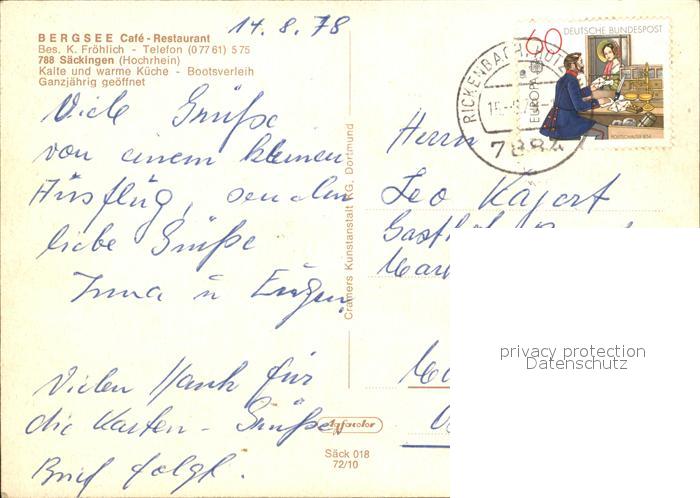 14.8.78
BERGSEE Café-Restaurant
Bes. K. Fröhlich - Telefon (07761) 575
788 Säckingen (Hochrhein)
Kalte und warme Küche - Bootsverleih
Ganzjährig geöffnet
Viele Grüße
von einem kleinen
Ausflug, senden
liebe Grüße
Irma u Eugen.
Vielen Dank für
die Karten - Grüße
Brief folgt.
Cramers Kunstanstalt KG, Dortmund
agfacolor
Säck 018
72/10
60
DEUTSCHE BUNDESPOST
EUROPA
POSTSCHALTER 1854
RICKENBACH, HOTZ
7884
Herrn
Leo
privacy protection
Datenschutz